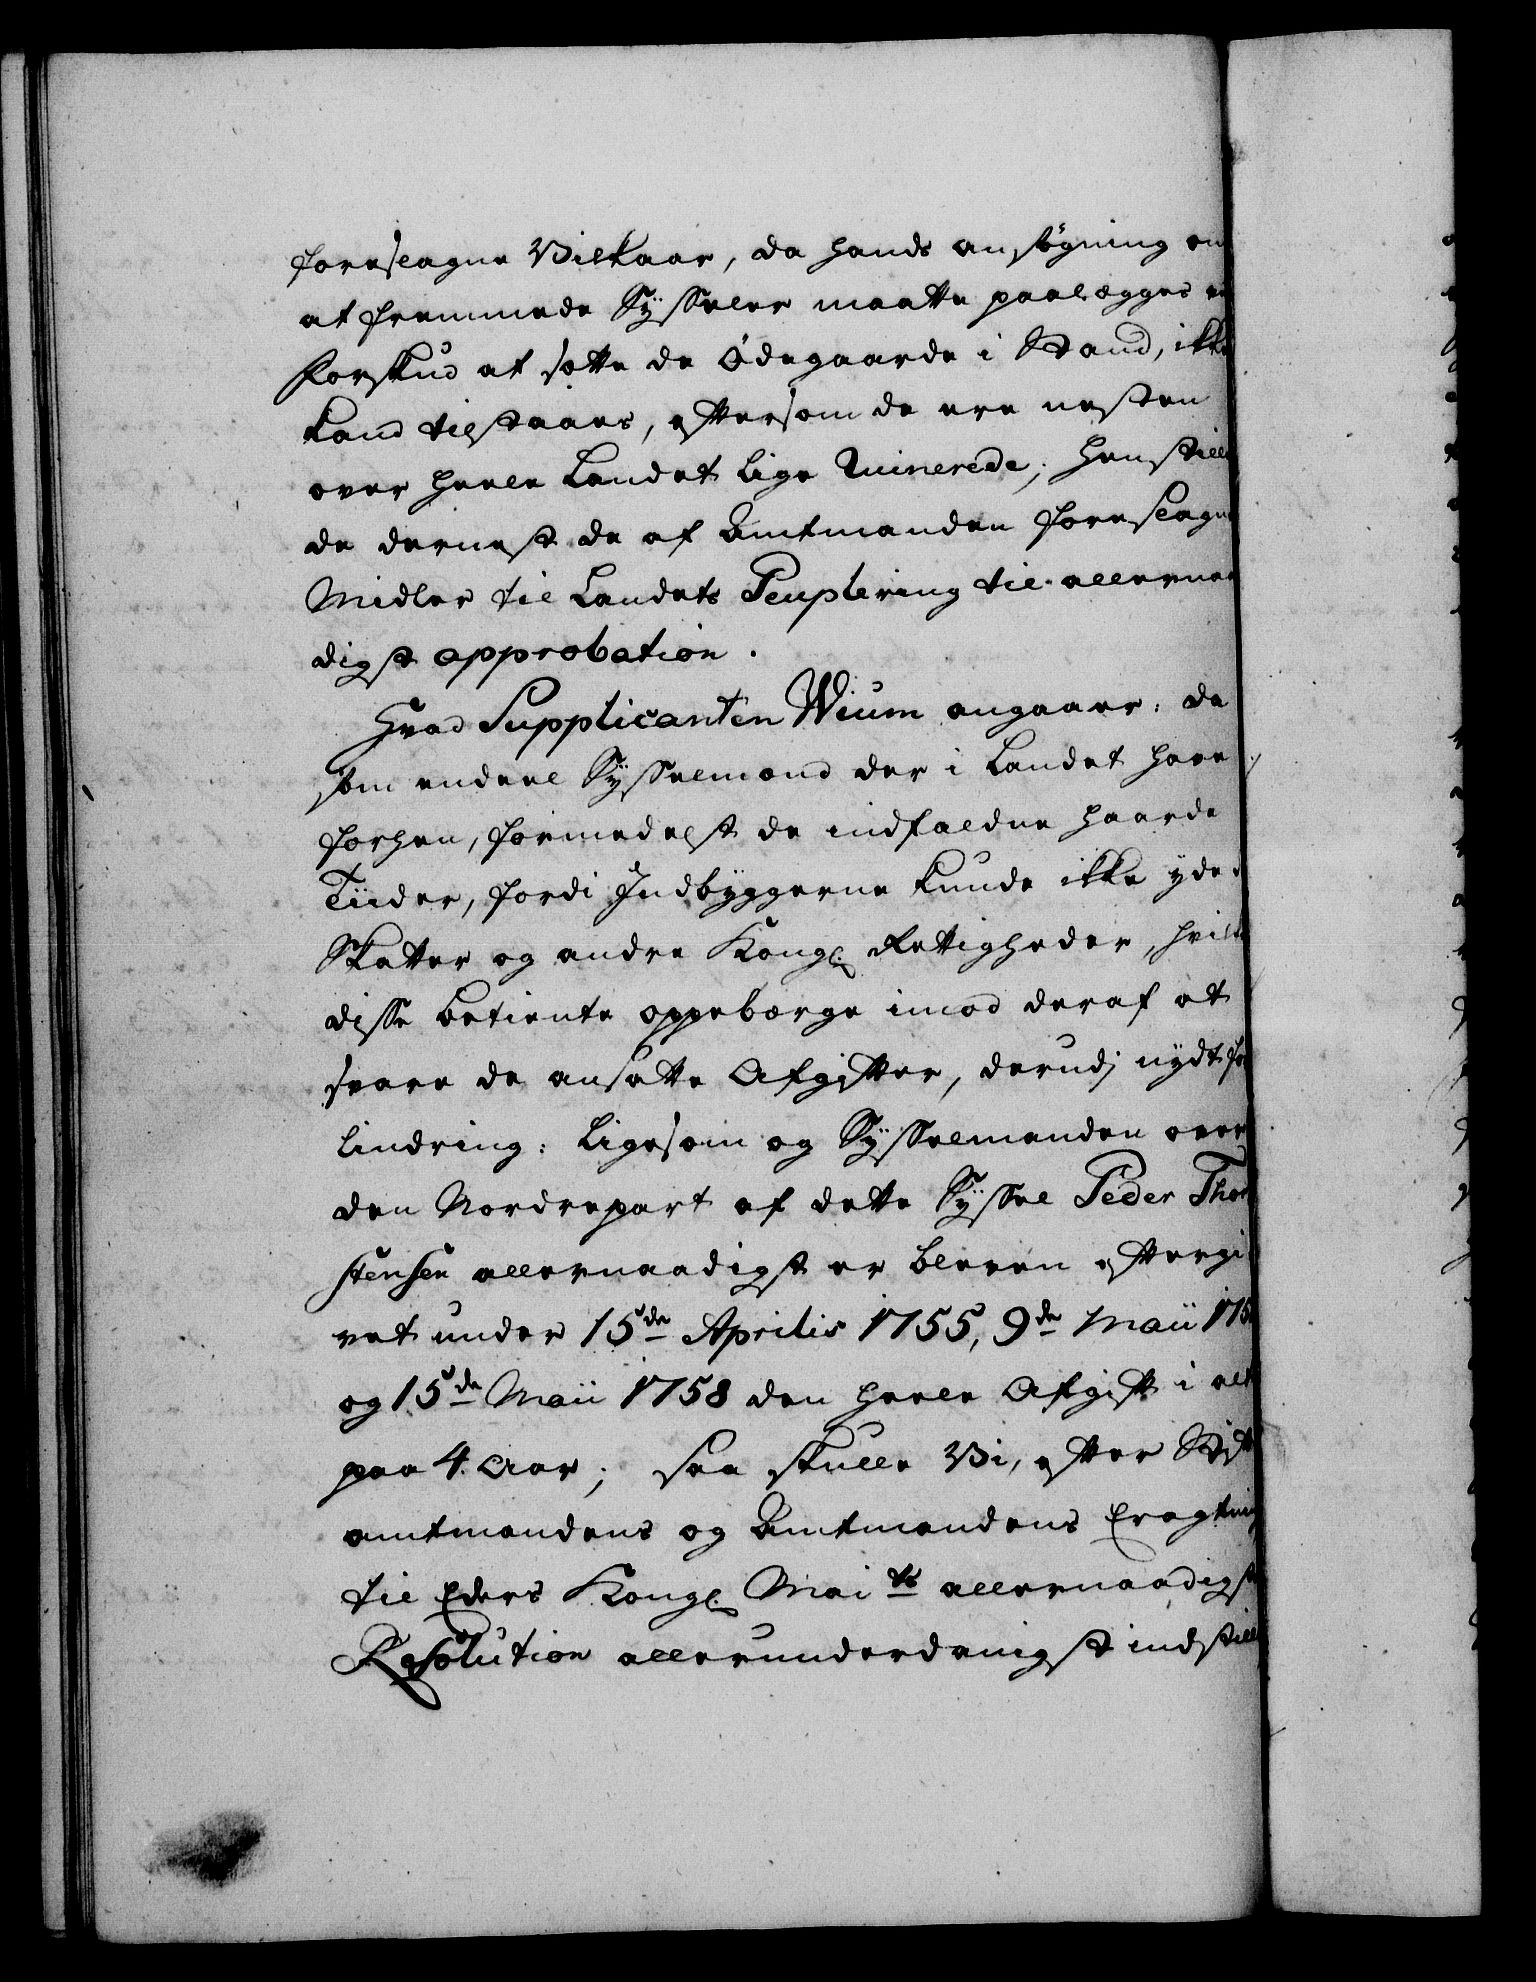 foreslagne Vilkaar, da hands ansøgning om
at fremmede Sysseler maatte paalægges en
Forskud at sætte de Ødegaarde i Stand, ikke
kand tilstaaes, eftersom de ere nesten
over heele Landet lige Ruinerede; henstille
de dernest de af Amtmanden foreslagne
Midler til Landets Peuplering til allernaa
digst approbation.
Hvad Supplicanten Wium angaaer: da
som endeel Sysselmænd der i Landet have
forhen, formedelst de indfaldne haarde
Tiider, fordi Indbyggerne kunde ikke yde d
Skatter og andre Kongl. Rettigheder, hvilke
disse betiente oppebærge imod deraf at
svare de ansatte Afgifter, derudj nydt for
lindring: ligesom og Sysselmanden over
den Nordrepart af dette Syssel Peder Thor
stensen allernaadigst er bleven eftergi
vet under 15de Aprilis 1755, 9de Maii 175
og 15de Maii 1758 den heele Afgift i alt
paa 4. Aar; saa skulle Vi, efter Stift
amtmandens og Amtmandens Eragtning
til Eders Kongl. Maits allernaadigste
Resolution allerunderdanigst indstille